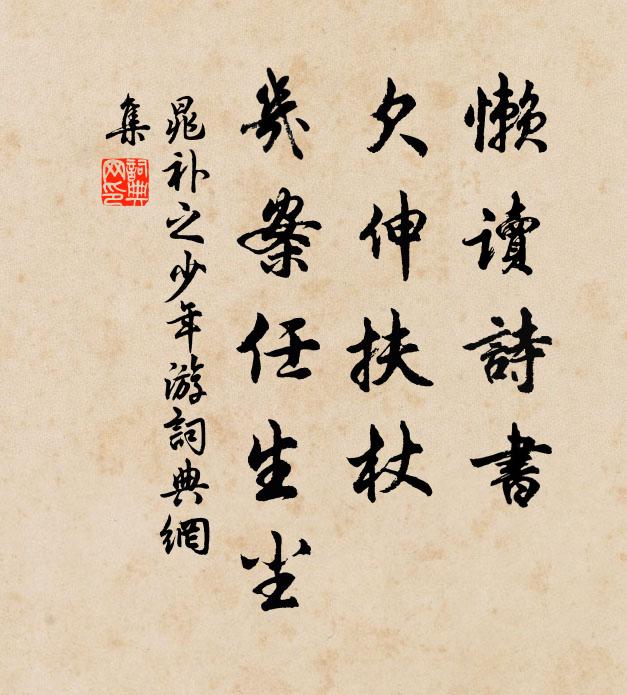 懒讀詩書
欠伸扶杖
幾案任生尘
晁补之少年游詞典網
集
詞典网印